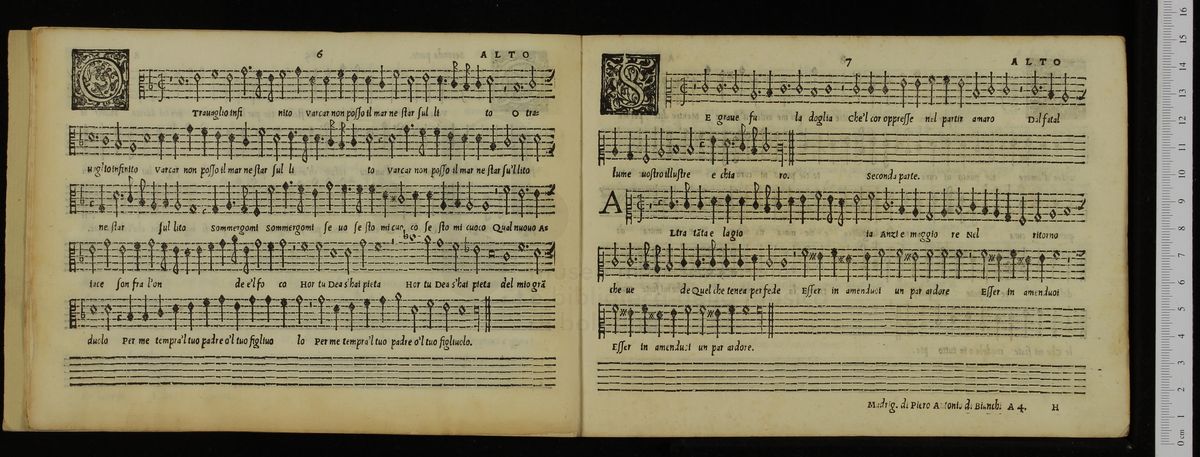 6 ALTO
O Trauaglio infi nito varcar non posso il mar ne star sul li to O tra-
uaglio infinito varcar non posso il mar ne star sul li to varcar non posso il mar ne star su'l lito
ne star sul lito Sommergomi Sommergomi se uo se sto mi cuo co se sto mi cuoco Qual nuouo As
tace son fra l'on de e'l fo co Hor tu Dea s'hai pieta Hor tu Dea s'hai pieta del mio grã
duolo Per me tempra'l tuo padre o'l tuo figliuo lo Per me tempra'l tuo padre o'l tuo figliuolo.
7 ALTO
S E graue fu la doglia Che'l cor oppresse nel partir amaro Dal fatal
lume uostro illustre e chia ro. Seconda parte.
A Ltra tãta e la gio ia Anzi e maggio re Nel ritorno
che ue de Quel che tenea per fede Esser in amenduoi un par ardore Esser in amenduoi
Esser in amenduoi un par ardore.
Madrig. di Piero Antonio di Bianchi A 4. H
0 cm 1 2 3 4 5 6 7 8 9 10 11 12 13 14 15 16